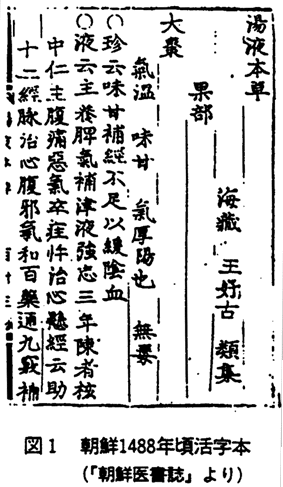 湯液本草
海藏 王好古 類集
果部
大棗
氣溫 味甘 氣厚陽也 無毒
珍云味甘補經不足以緩陰血
液云主養脾氣補津液強志三年陳者核
中仁主腹痛惡氣卒疰忤治心懸經云助
十二經脉治心腹邪氣和百藥通九竅補
図1 朝鮮1488年頃活字本
(『朝鮮医書誌』より)